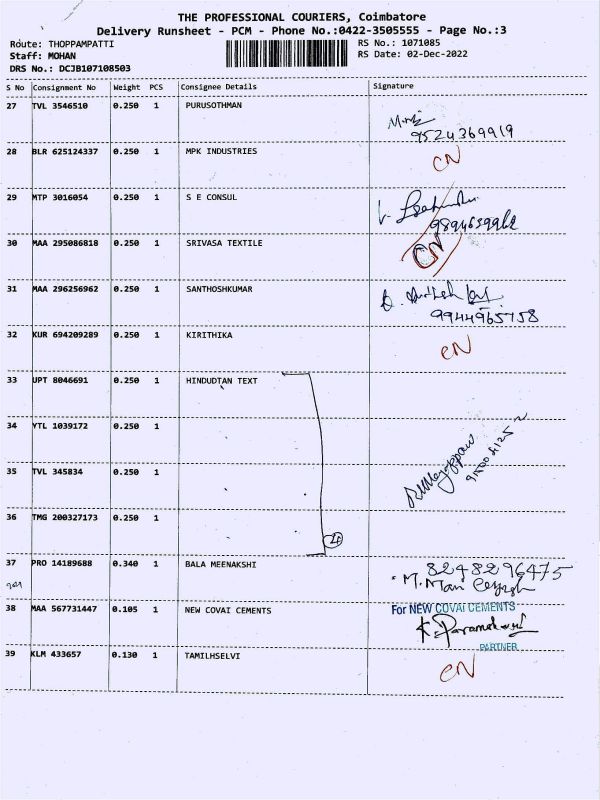 THE PROFESSIONAL COURIERS, Coimbatore
Delivery Runsheet - PCM - Phone No.:0422-3505555 - Page No.:3
Route: THOPPAMPATTI
RS No.: 1071085
Staff: MOHAN
RS Date: 02-Dec-2022
DRS No.: DCJB107108503
S No Consignment No Weight PCS Consignee Details Signature
27 TVL 3546510 0.250 1 PURUSOTHMAN
9524369919
28 BLR 625124337 0.250 1 MPK INDUSTRIES CN
29 MTP 3016054 0.250 1 S E CONSUL
30 MAA 295086818 0.250 1 SRIVASA TEXTILE CN
31 MAA 296256962 0.250 1 SANTHOSHKUMAR
9944965758
32 KUR 694209289 0.250 1 KIRITHIKA CN
33 UPT 8046691 0.250 1 HINDUDTAN TEXT
34 YTL 1039172 0.250 1
35 TVL 345834 0.250 1
36 TMG 200327173 0.250 1
4
37 PRO 14189688 0.340 1 BALA MEENAKSHI 8248296475
M. Mani
38 MAA 567731447 0.105 1 NEW COVAI CEMENTS For NEW COVAI CEMENTS
PARTNER
39 KLM 433657 0.130 1 TAMILHSELVI CN